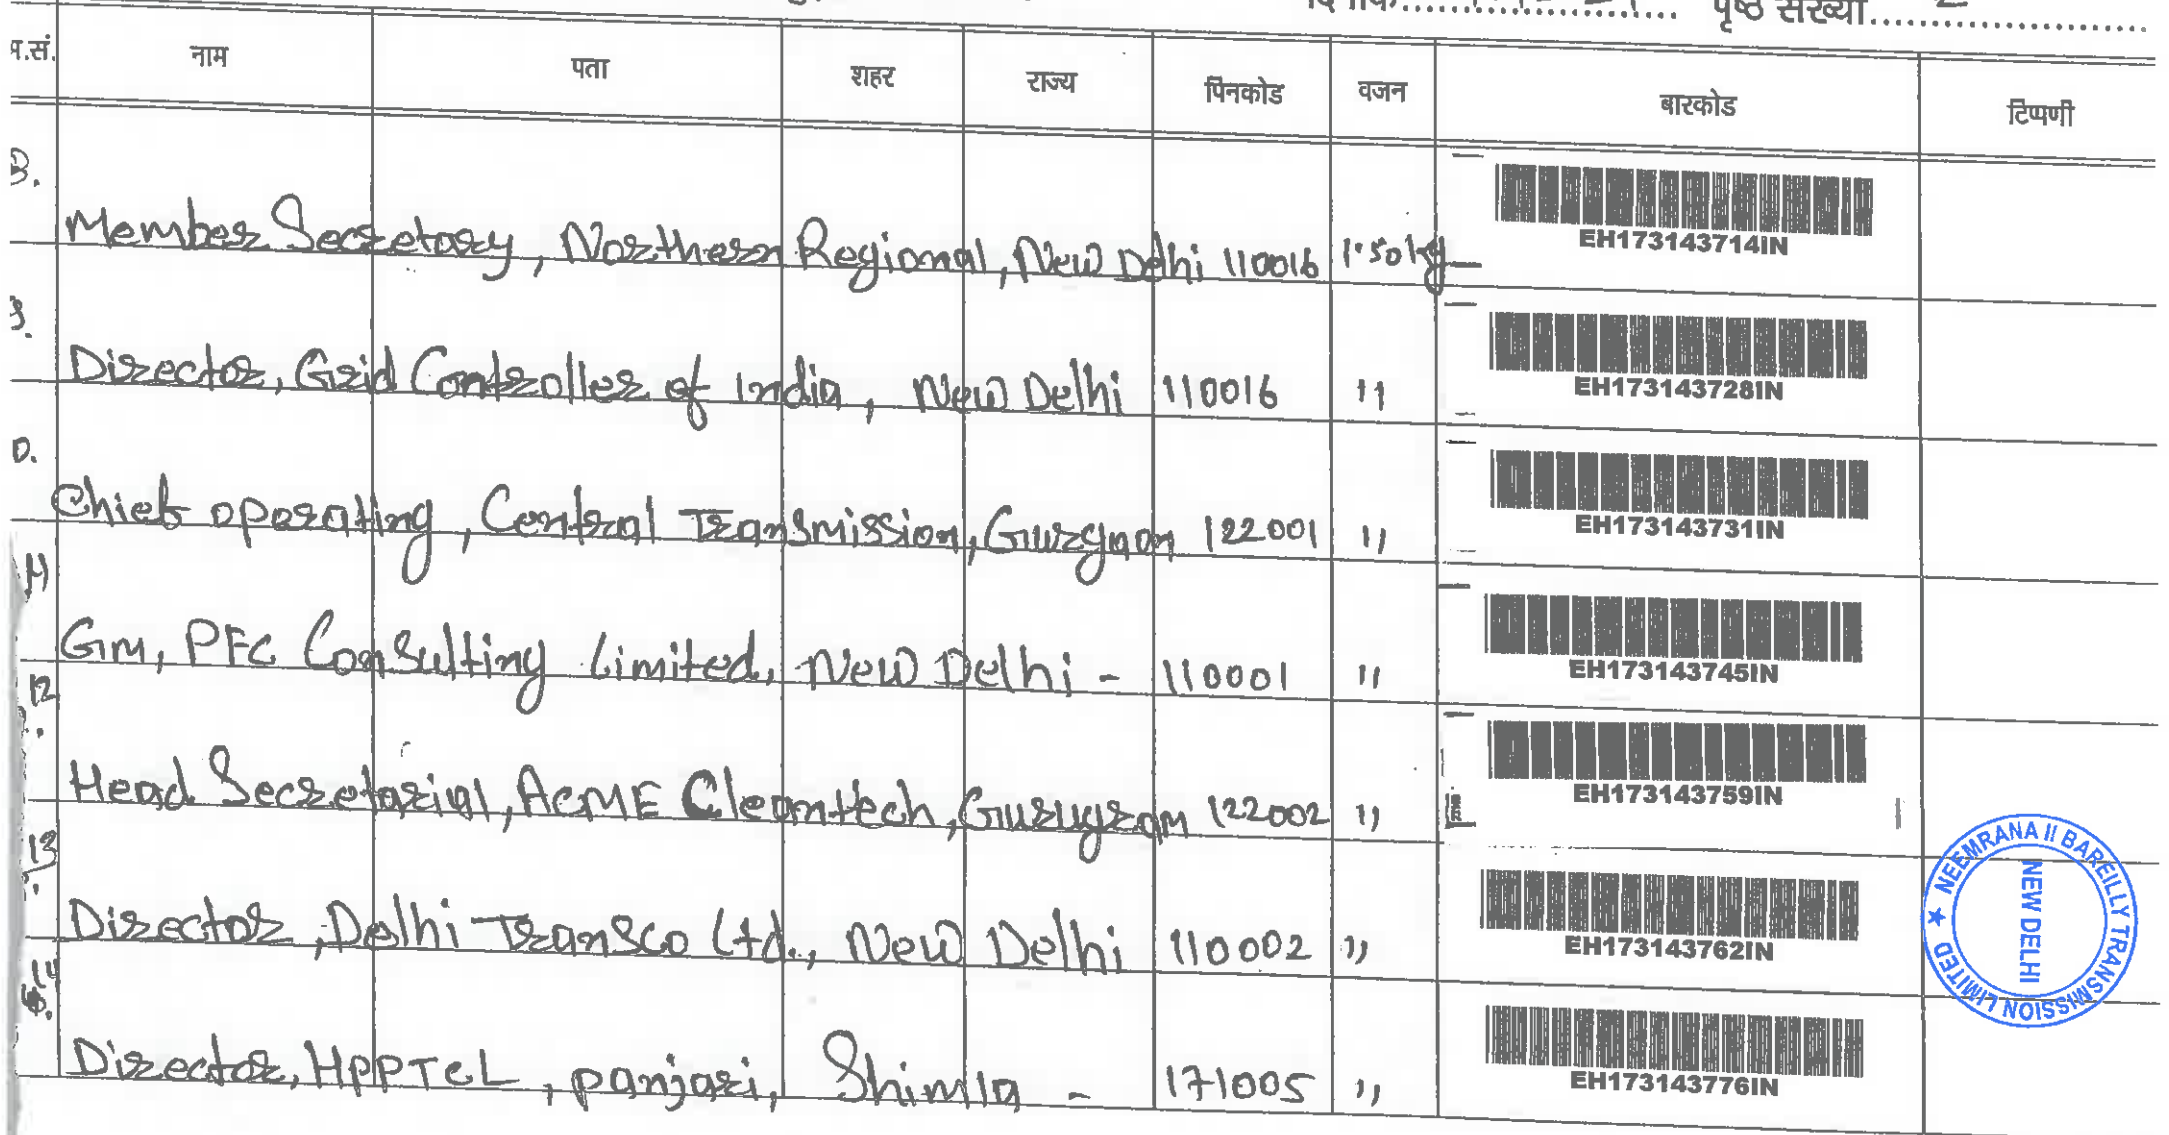 पृष्ठ संख्या.....2
नाम पता शहर राज्य पिनकोड वजन बारकोड टिप्पणी
Member Secretary, Northern Regional, New Delhi 110016 1.50kg EH173143714IN
Director, Grid Controller of India, New Delhi 110016 " EH173143728IN
Chief operating, Central Transmission, Gurgaon 122001 " EH173143731IN
11
GM, PFC Consulting Limited, New Delhi - 110001 " EH173143745IN
12
Head Secretarial, ACME Cleantech, Gurugram 122002 " EH173143759IN
13
Director, Delhi Transco Ltd., New Delhi 110002 " EH173143762IN
14
Director, HPPTCL, panjari, Shimla - 171005 " EH173143776IN
NEEMRANA II BAREILLY TRANSMISSION LIMITED ★
NEW DELHI